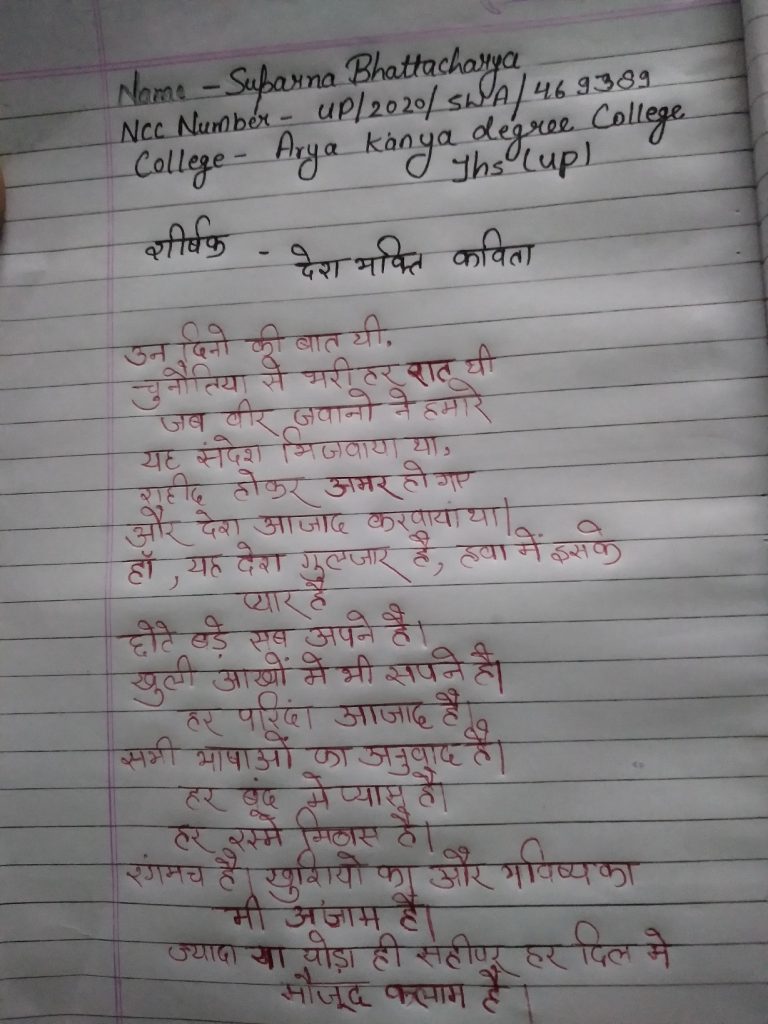 Name - Suparna Bhattacharya
NCC Number - UP/2020/SWA/469389
College - Arya Kanya degree College
Jhs (UP)
शीर्षक - देश भक्ति कविता
उन दिनो की बात थी,
चुनौतिया से भरी हर रात थी
जब वीर जवानो ने हमारे
यह संदेश भिजवाया था,
शहीद होकर अमर हो गए
और देश आजाद करवाया था।
हाँ, यह देश गुलजार है, हवा में इसके
प्यार है
छोटे बड़े सब अपने है।
खुली आखों मे भी सपने है।
हर परिंदा आजाद है।
सभी भाषाओं का अनुवाद है।
हर बूंद मे प्यास है।
हर रस्मे मिठास है।
रंगमच है। खुशियो का और भविष्य का
भी अंजाम है।
ज्यादा या थोड़ा ही सहीपर हर दिल मे
मौजूद कलाम है।